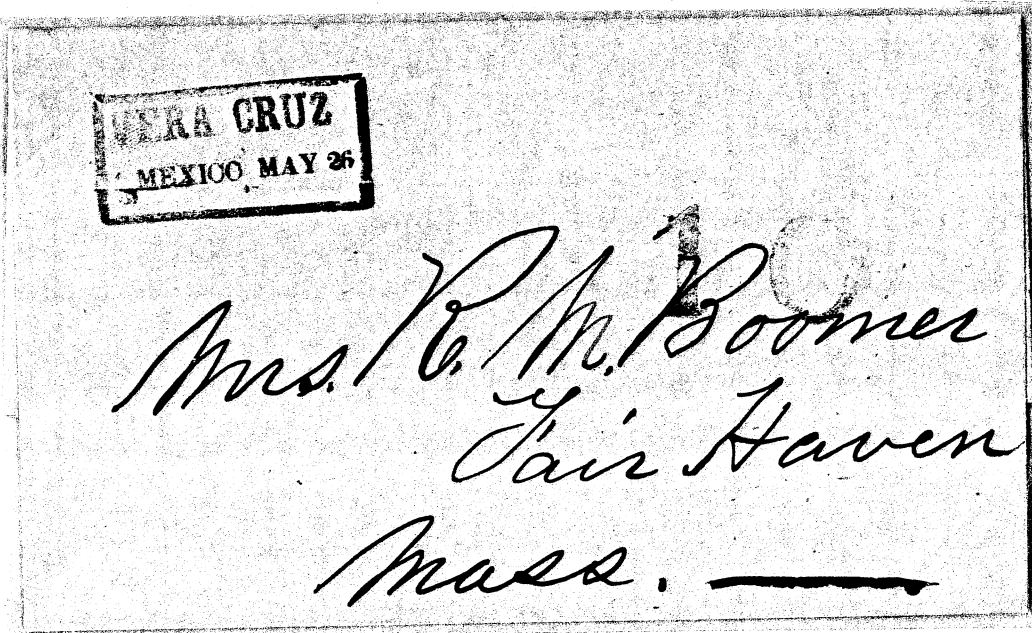 VERA CRUZ
MEXICO MAY 26
10
Mrs. R. M. Boomer
Fair Haven
Mass.